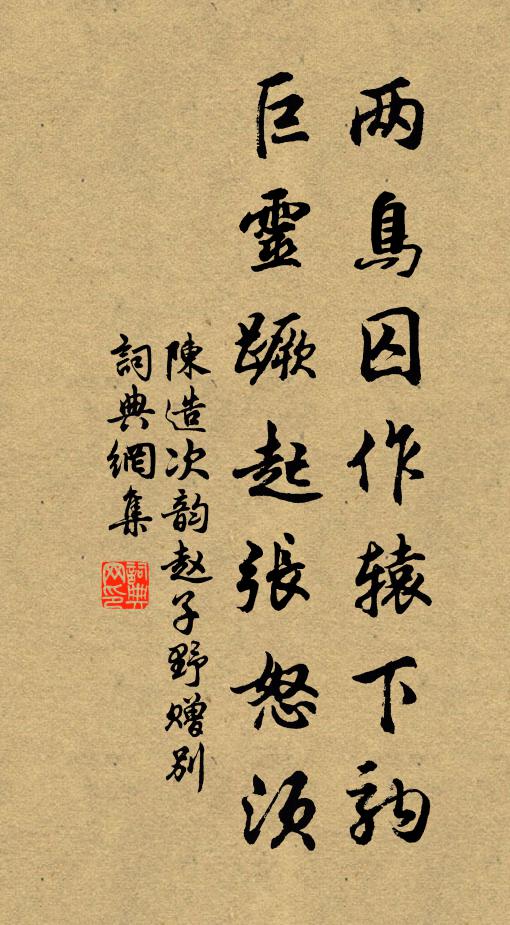 两鳥囚作辕下驹
巨靈蹶起張怒须
陳造次韵赵子野赠别
詞典網集
詞典网印